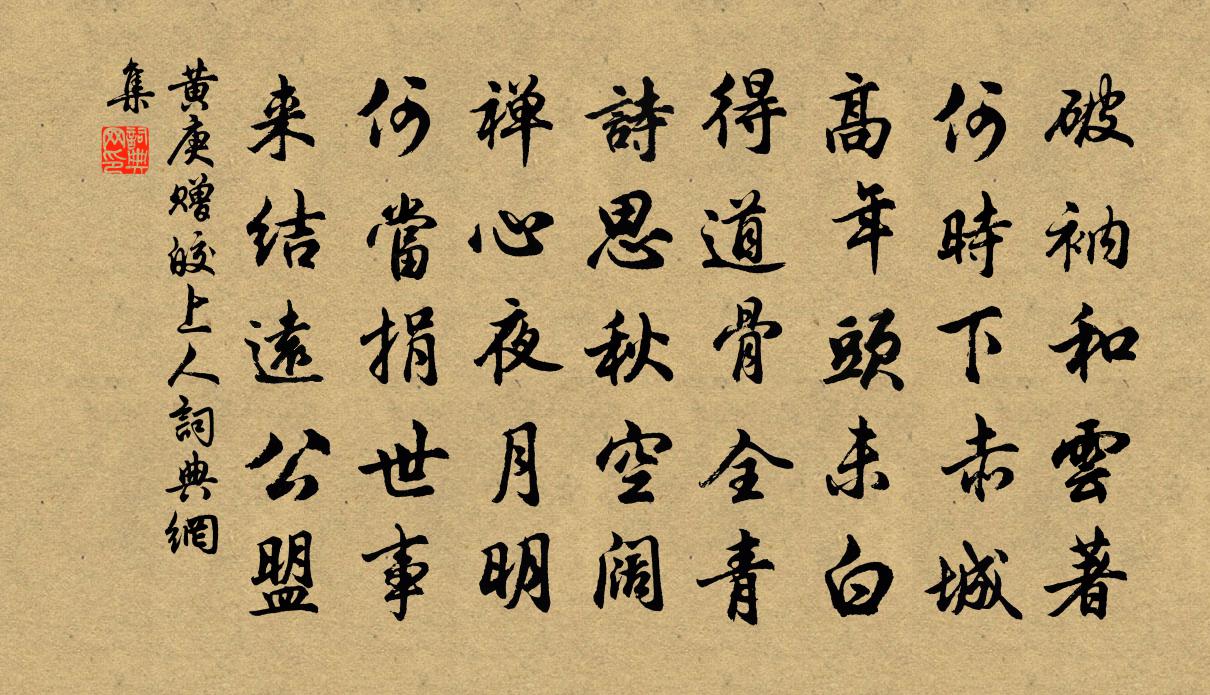 破衲和雲著
何時下赤城
高年頭未白
得道骨全青
詩思秋空阔
禅心夜月明
何當捐世事
来结遠公盟
黄庚赠皎上人詞典網
集
詞典
网印